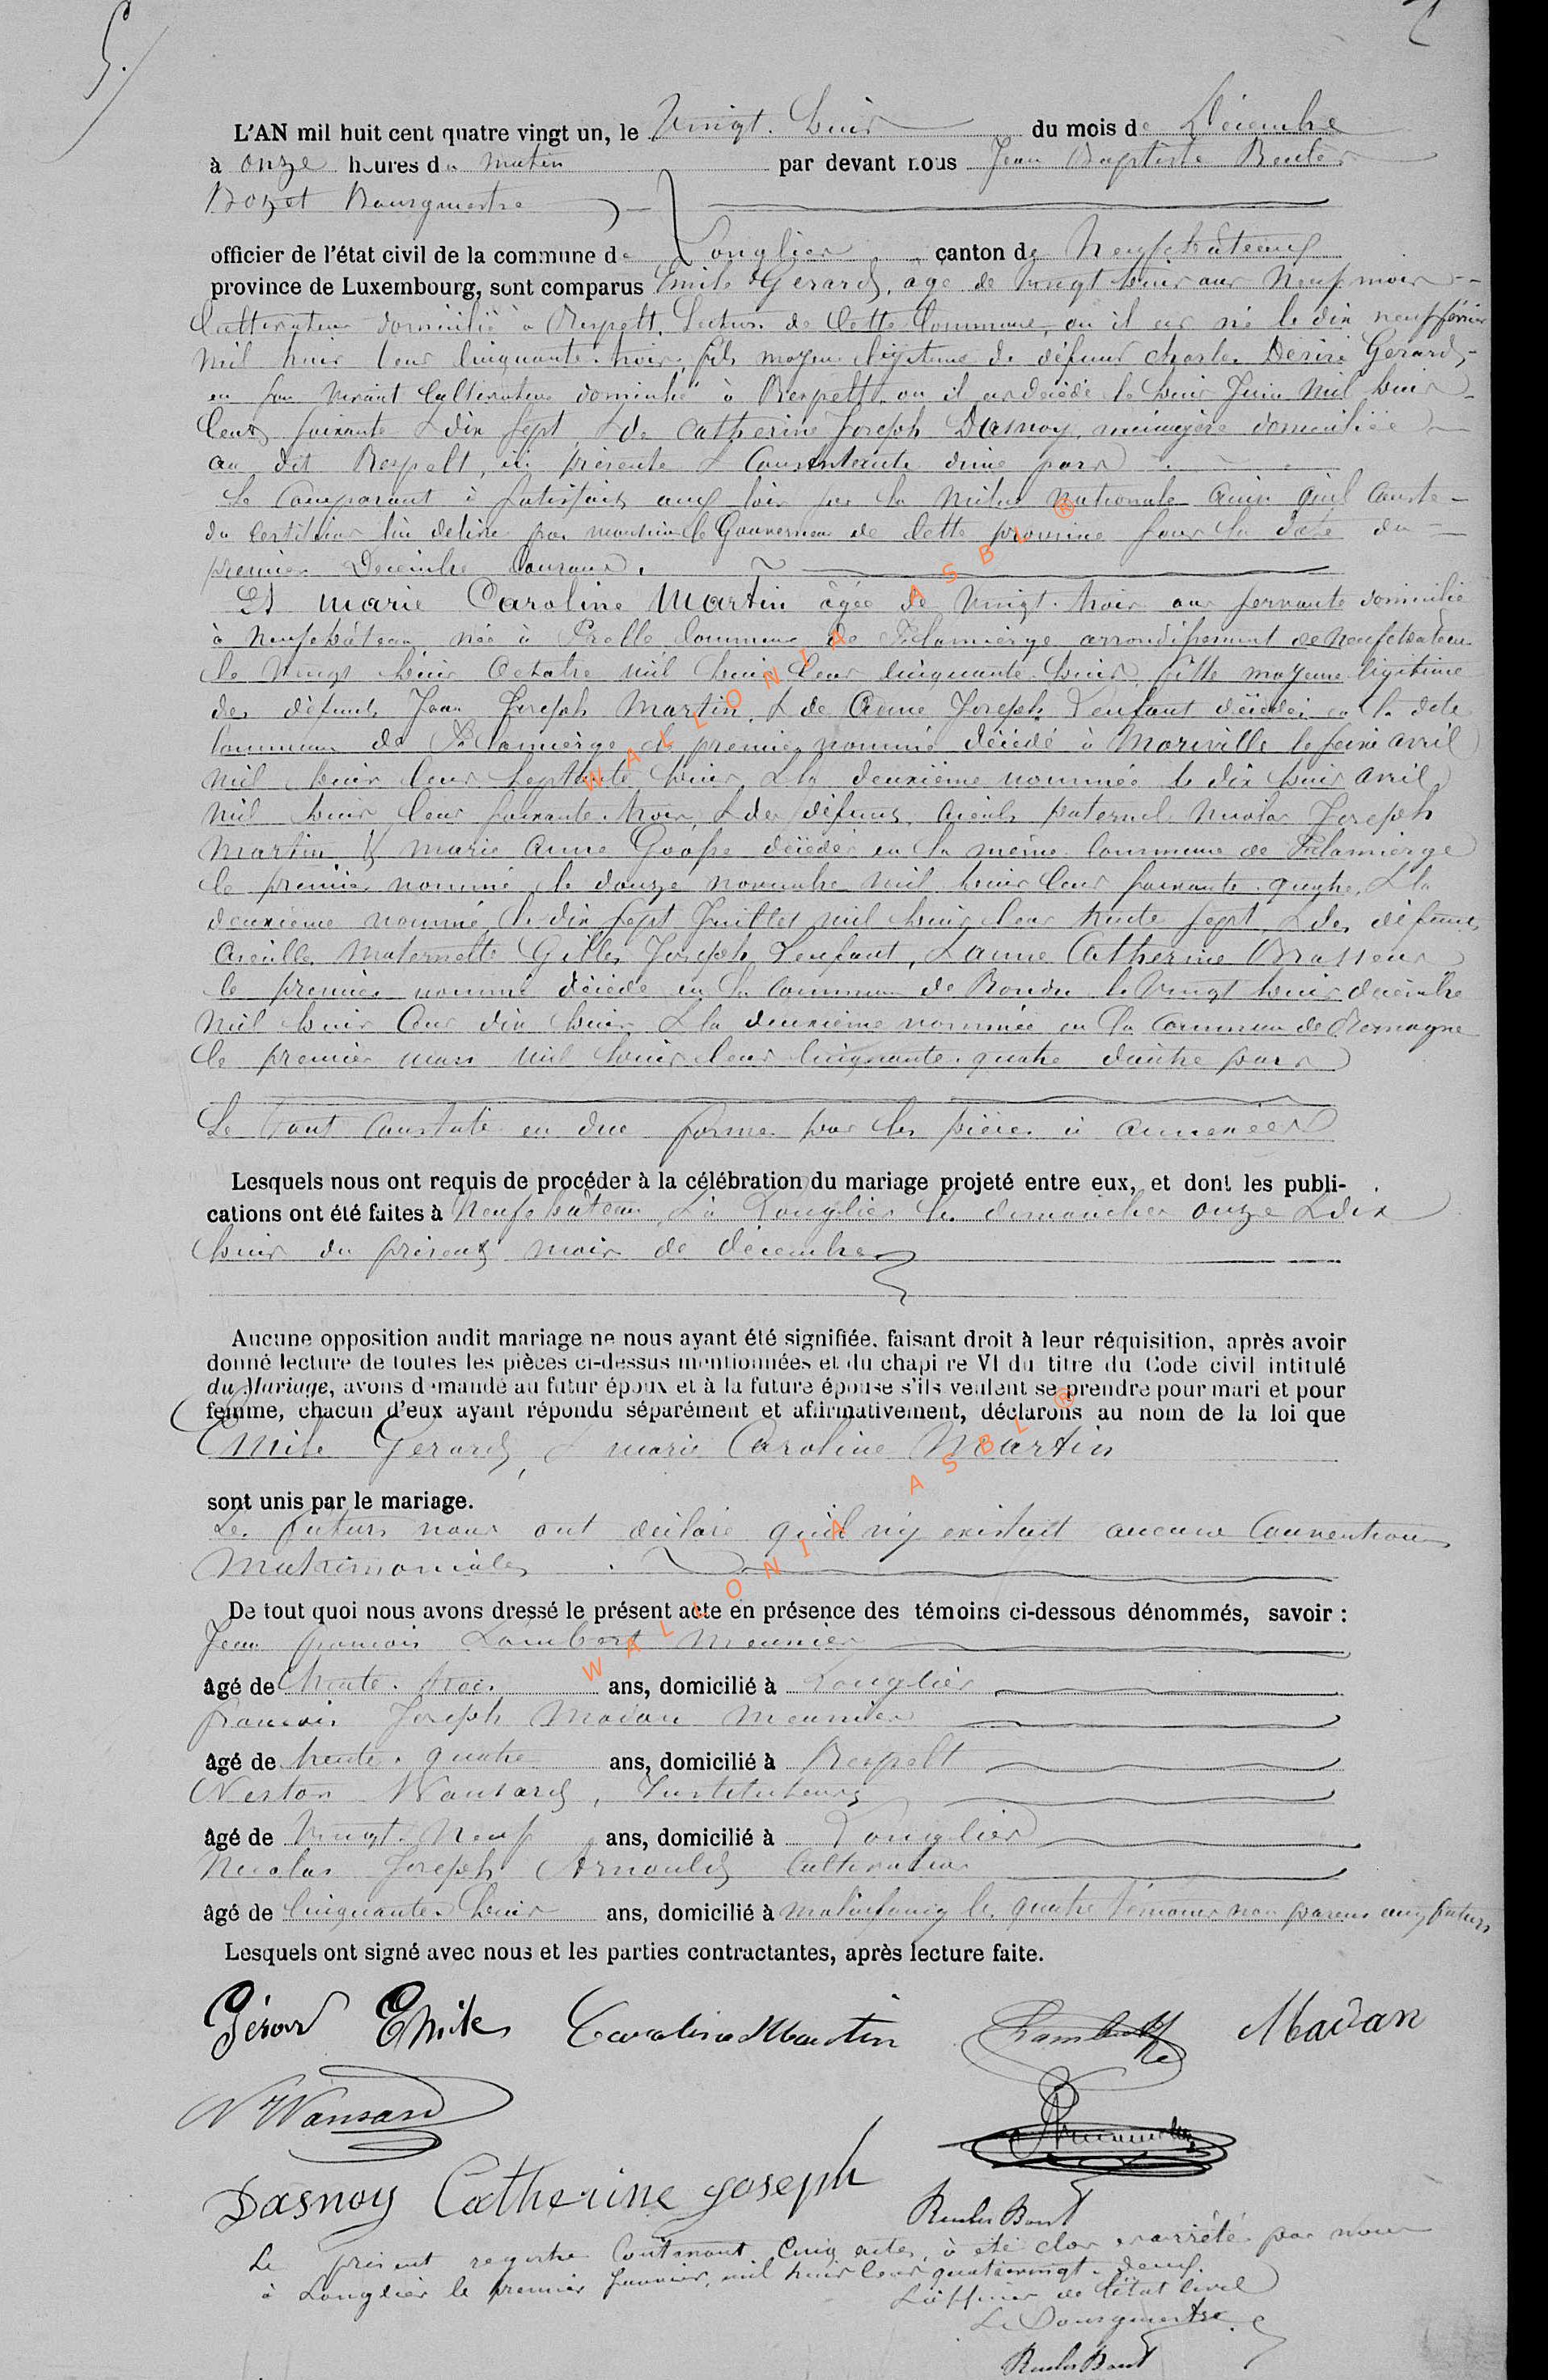 5.
L'AN mil huit cent quatre vingt un, le Vingt. huit du mois de Décembre
à onze heures du matin par devant nous Jean Baptiste Reuler
Bozet Bourgmestre
officier de l'état civil de la commune de Longlier canton de Neufchâteau
province de Luxembourg, sont comparus Emile Gerard, agé de vingt huit ans Neuf mois
Cultivateur domicilié à Respelt, Section de Cette Commune, ou il est né le dix neuf février
mil huit Cent Cinquante. trois, fils majeur légitime de défunt Charles Désiré Gerard,
en son vivant Cultivateur domicilié à Respelt ou il est décédé le huit Juin mil huit
Cent soixante & dix sept, & de Catherine Joseph Dasnoy, ménagère domiciliée
au dit Respelt, ici présente & Consentante d'une part
Le Comparant à satisfait aux lois sur la Milice nationale ainsi qu'il Conste
du Certificat lui délivré par monsieur le Gouverneur de Cette province sous la date du
premier Décembre Courant.
Et Marie Caroline Martin âgée de Vingt. trois ans servante domicilié
à Neufchâteau née à Prelle Commune de Tillet Flamierge arrondissement de Neufchateau
le Vingt huit Octobre mil huit Cent Cinquante huit, fille majeure légitime
des défunts Jean Joseph Martin, & de Anne Joseph Lenfant décédés en la dite
Commune de Flamierge le premier nommé décédé à Morville le seize avril
mil huit Cent septante huit & la deuxième nommée le dix huit avril
mil huit Cent soixante. trois, & des défunts aieuls paternel Nicolas Joseph
Martin & Marie Anne Goosse décédés en la même Commune de Flamierge
le premier nommé le douze novembre mil huit Cent soixante. quatre, & la
deuxième nommé le dix sept Juillet mil huit Cent trente sept, & des défunts
aieulls Maternelle Gilles Joseph Lenfant, & anne Catherine Brasseur
le premier nommé décédé en la Commune de Rondu le Vingt huit décembre
mil huit Cent dix huit & la deuxième nommée en la Commune de Remagne
le premier mars mil huit Cent Cinquante. quatre d'autre part
Le tout Constaté en due forme par les pièces ci annexées
Lesquels nous ont requis de procéder à la célébration du mariage projeté entre eux, et dont les publi-
cations ont été faites à Neufchâteau, & à Longlier les dimanches onze & dix
huit du présent mois de décembre
Aucune opposition audit mariage ne nous ayant été signifiée, faisant droit à leur réquisition, après avoir
donné lecture de toutes les pièces ci-dessus mentionnées et du chapi re VI du titre du Code civil intitulé
du Mariage, avons d mandé au futur époux et à la future épouse s'ils veulent se prendre pour mari et pour
femme, chacun d'eux ayant répondu séparément et affirmativement, déclarons au nom de la loi que
Emile Gerard, & marie Caroline Martin
sont unis par le mariage.
Les futurs nous ont déclaré qu'il n'y existait aucune Conventions
Matrimoniales
De tout quoi nous avons dressé le présent acte en présence des témoins ci-dessous dénommés, savoir :
Jean françois Lambert Meunier
âgé de trente. trois ans, domicilié à Longlier
françois Joseph Madan Meunier
âgé de trente. quatre ans, domicilié à Respelt
Nestor Wansard, Instituteur
âgé de Vingt. Neuf ans, domicilié à Longlier
Nicolas Joseph Arnould Cultivateur
âgé de Cinquante. huit ans, domicilié à Molinfaing les quatre témoins non parents aux futurs
Lesquels ont signé avec nous et les parties contractantes, après lecture faite.
Gérard Emile Caroline Martin Lambert Madan
N Wansard
Dasnoy Catherine Joseph
Le présent registre Contenant Cinq actes, à été clos et arrêté par nous
à Longlier le premier Janvier, mil huit Cent quatrevingt. deux.
L'officier de l'état Civil
Le Bourgmestre
WALLONIA ASBL ®
WALLONIA ASBL ®